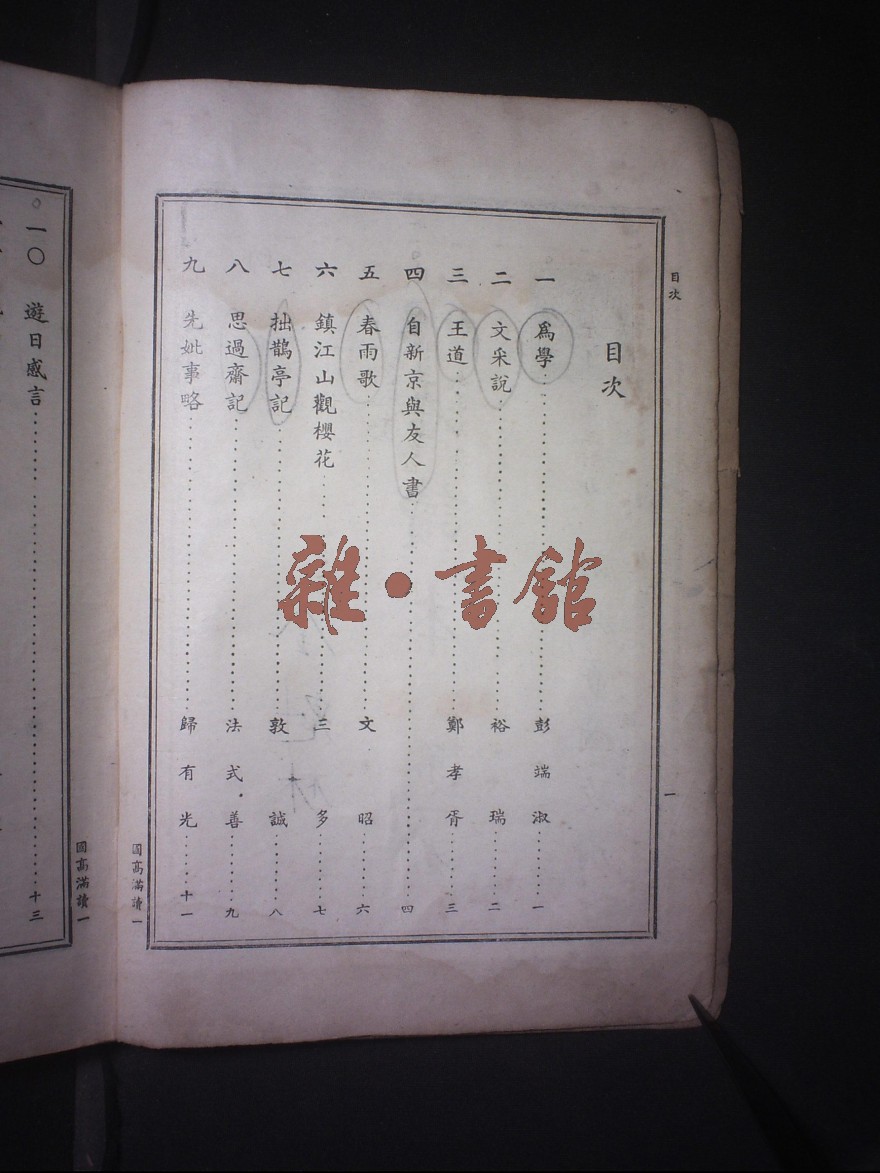 目次
一
目次
一 爲學 彭端淑 一
二 文采說 裕瑞 二
三 王道 鄭孝胥 三
四 自新京與友人書 四
五 春雨歌 文昭 六
六 鎮江山觀櫻花 三多 七
七 拙鵲亭記 敦誠 八
八 思過齋記 法式善 九
九 先妣事略 歸有光 十一
國高滿讀一
一〇 遊日感言 十三
國高滿讀一
雜·書館